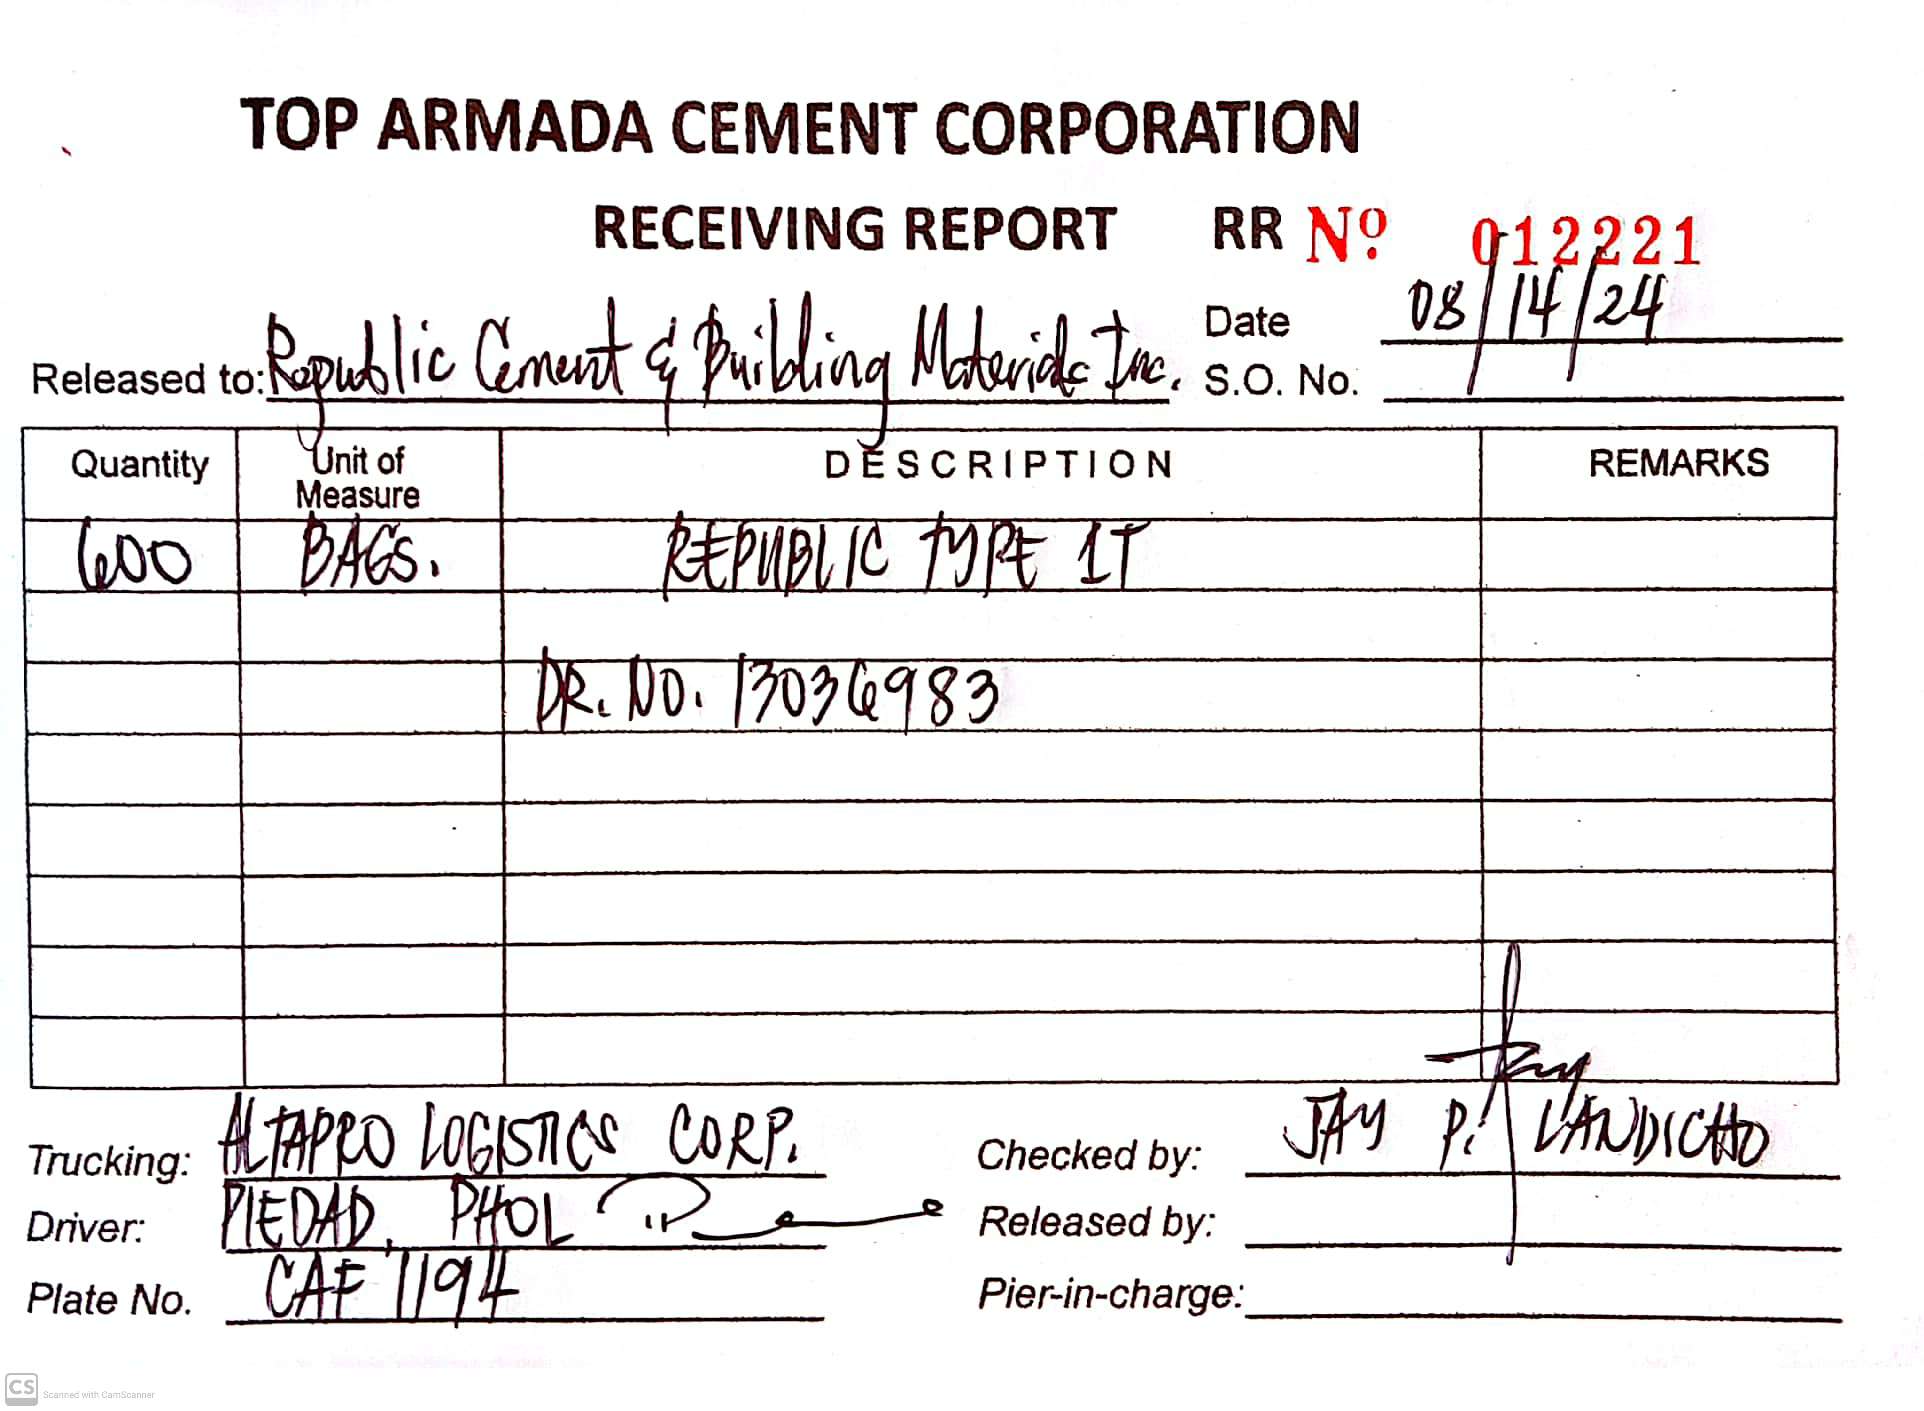 TOP ARMADA CEMENT CORPORATION
RECEIVING REPORT RR Nº 012221
Date 08/14/24
Released to: Republic Cement & Building Materials Inc. S.O. No.
Quantity Unit of Measure DESCRIPTION REMARKS
600 BAGS. REPUBLIC TYPE 1T
DR. NO. 13036983
Trucking: ALTAPRO LOGISTICS CORP. Checked by: JAY P. LANDICHO
Driver: PIEDAD, PHOL Released by:
Plate No. CAF 1194 Pier-in-charge:
CS Scanned with CamScanner